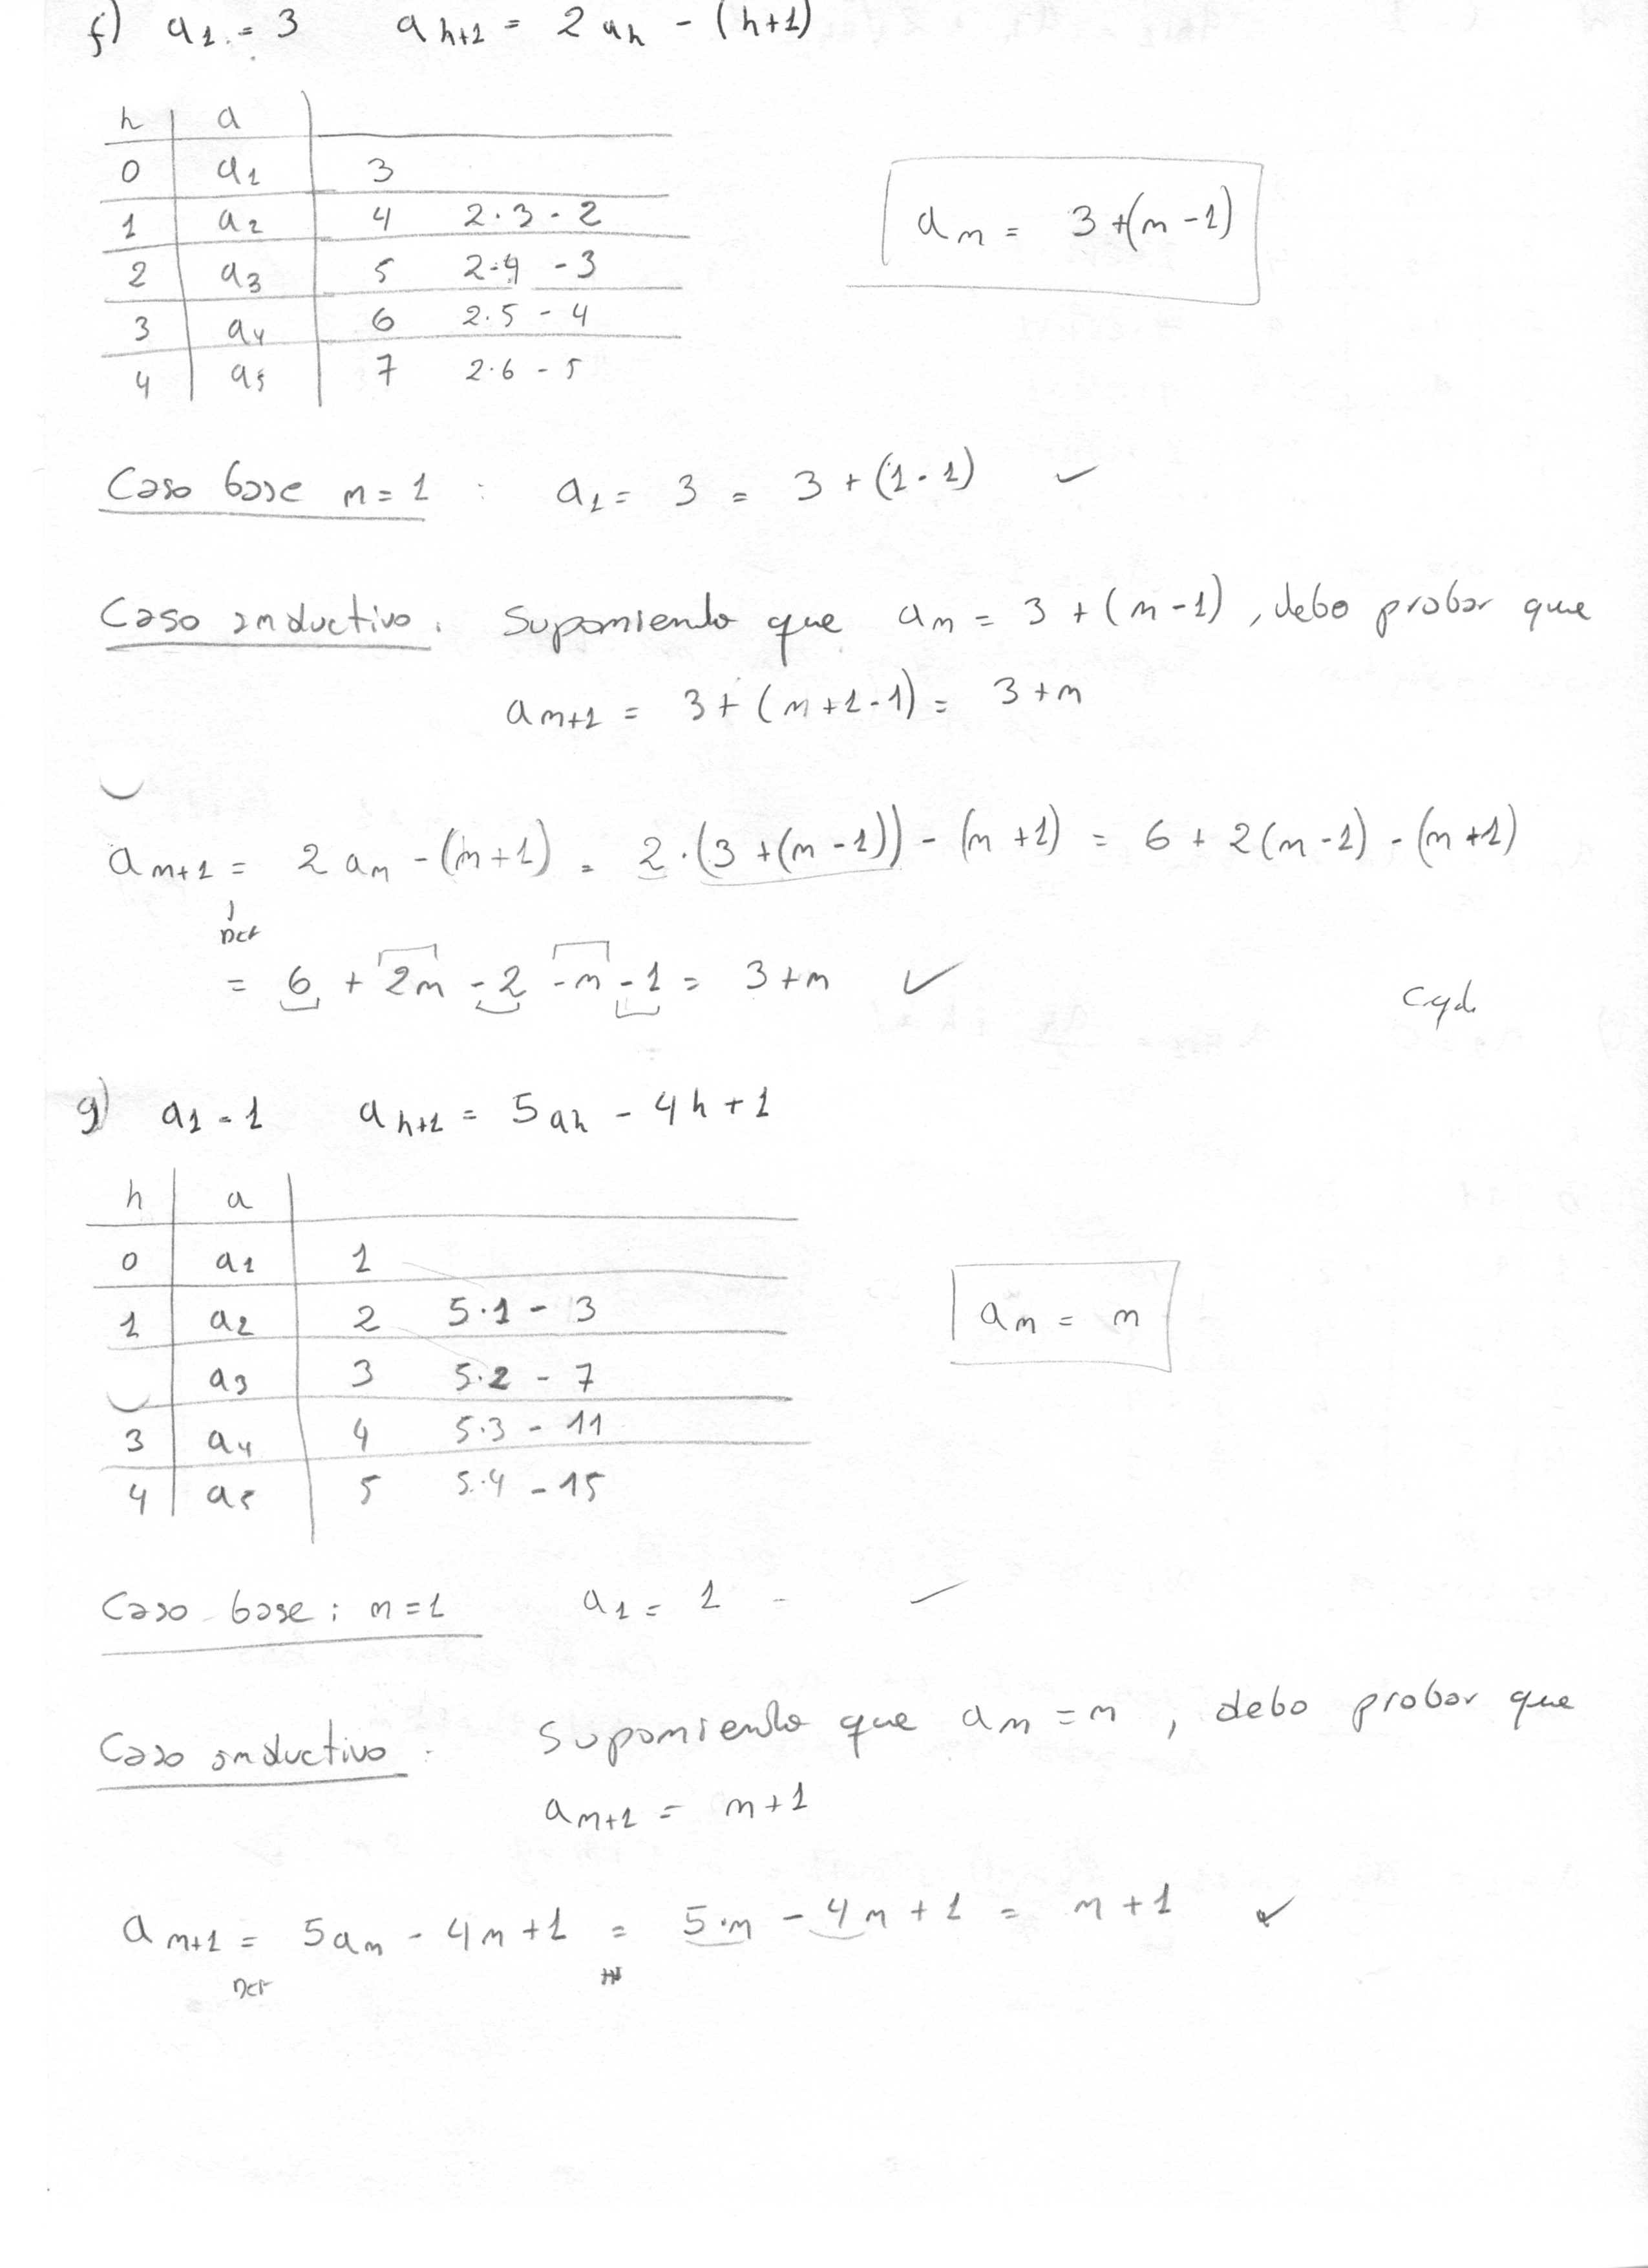 f) a1 = 3 ah+1 = 2ah - (h+1)
h a
0 a1 3
1 a2 4 2·3 - 2
2 a3 5 2·4 - 3
3 a4 6 2·5 - 4
4 a5 7 2·6 - 5
an = 3+(n-1)
Caso base n=1 : a1 = 3 = 3+(1-1) ✓
Caso inductivo. Suponiendo que an = 3+(n-1), debo probar que
an+1 = 3+(n+1-1) = 3+n
an+1 = 2an - (n+1) = 2·(3+(n-1)) - (n+1) = 6 + 2(n-1) - (n+1)
Def
= 6 + 2n - 2 - n - 1 = 3+n ✓ cqd.
g) a1 = 1 ah+1 = 5ah - 4h+1
h a
0 a1 1
1 a2 2 5·1 - 3
a3 3 5·2 - 7
3 a4 4 5·3 - 11
4 a5 5 5·4 - 15
an = n
Caso base: n=1 a1 = 1 ✓
Caso inductivo: Suponiendo que an = n, debo probar que
an+1 = n+1
an+1 = 5an - 4n+1 = 5·n - 4n+1 = n+1 ✓
Def HI